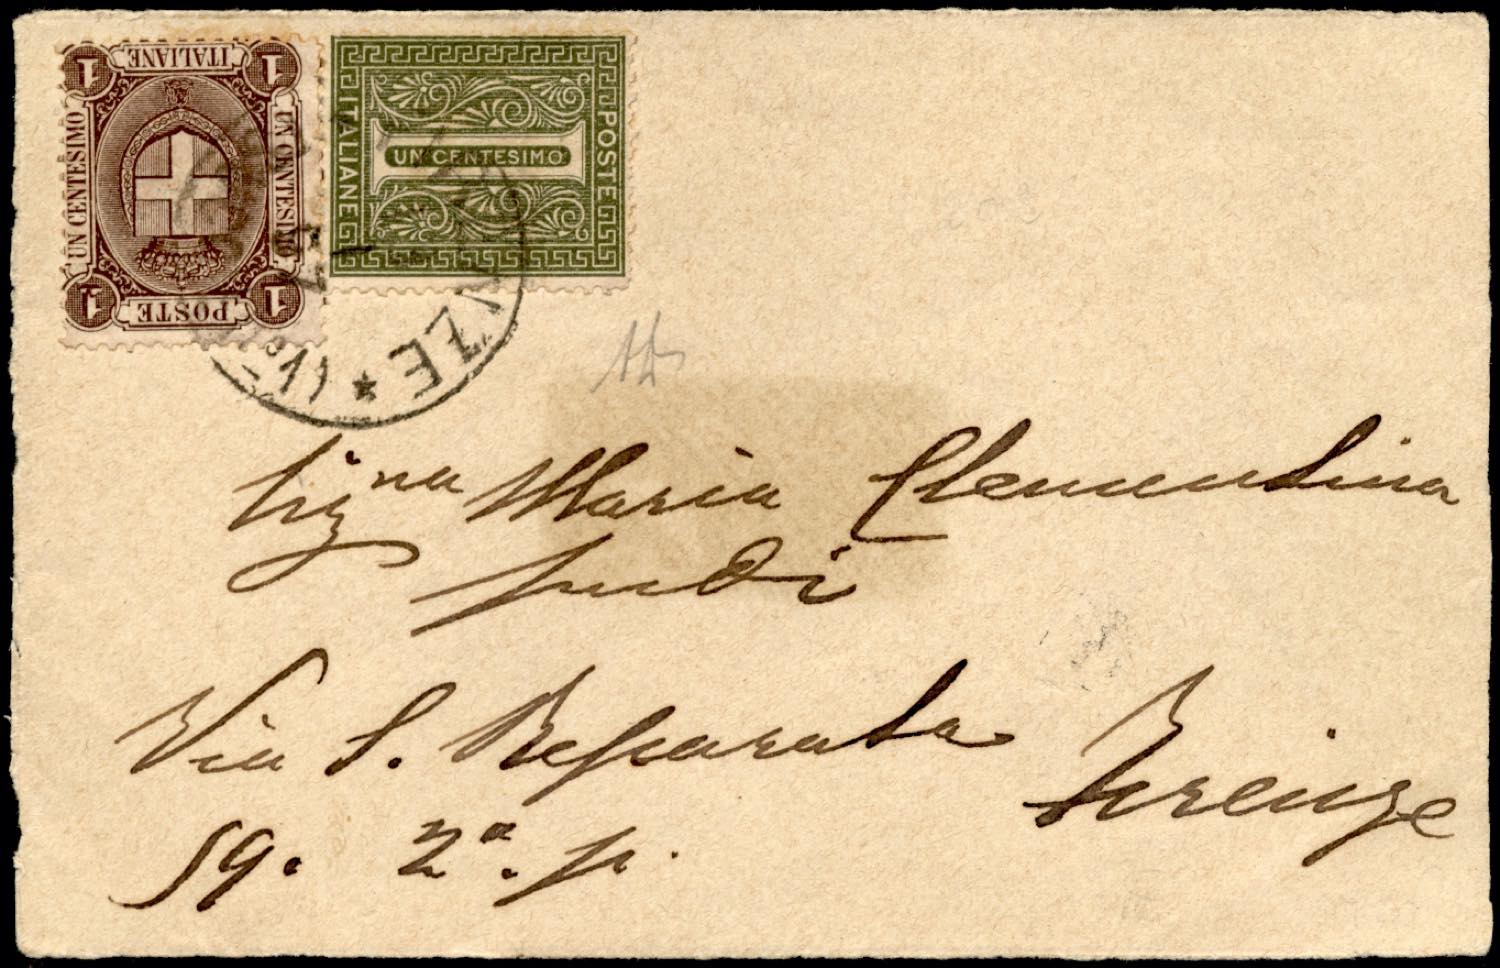 1 ITALIANE 1
UN CENTESIMO
UN CENTESIMO
1 POSTE 1
ITALIANE
UN CENTESIMO
POSTE
FIRENZE ★
Signa Maria Clementina
Judi
Via S. Reparata
Firenze
59. 2a. p.